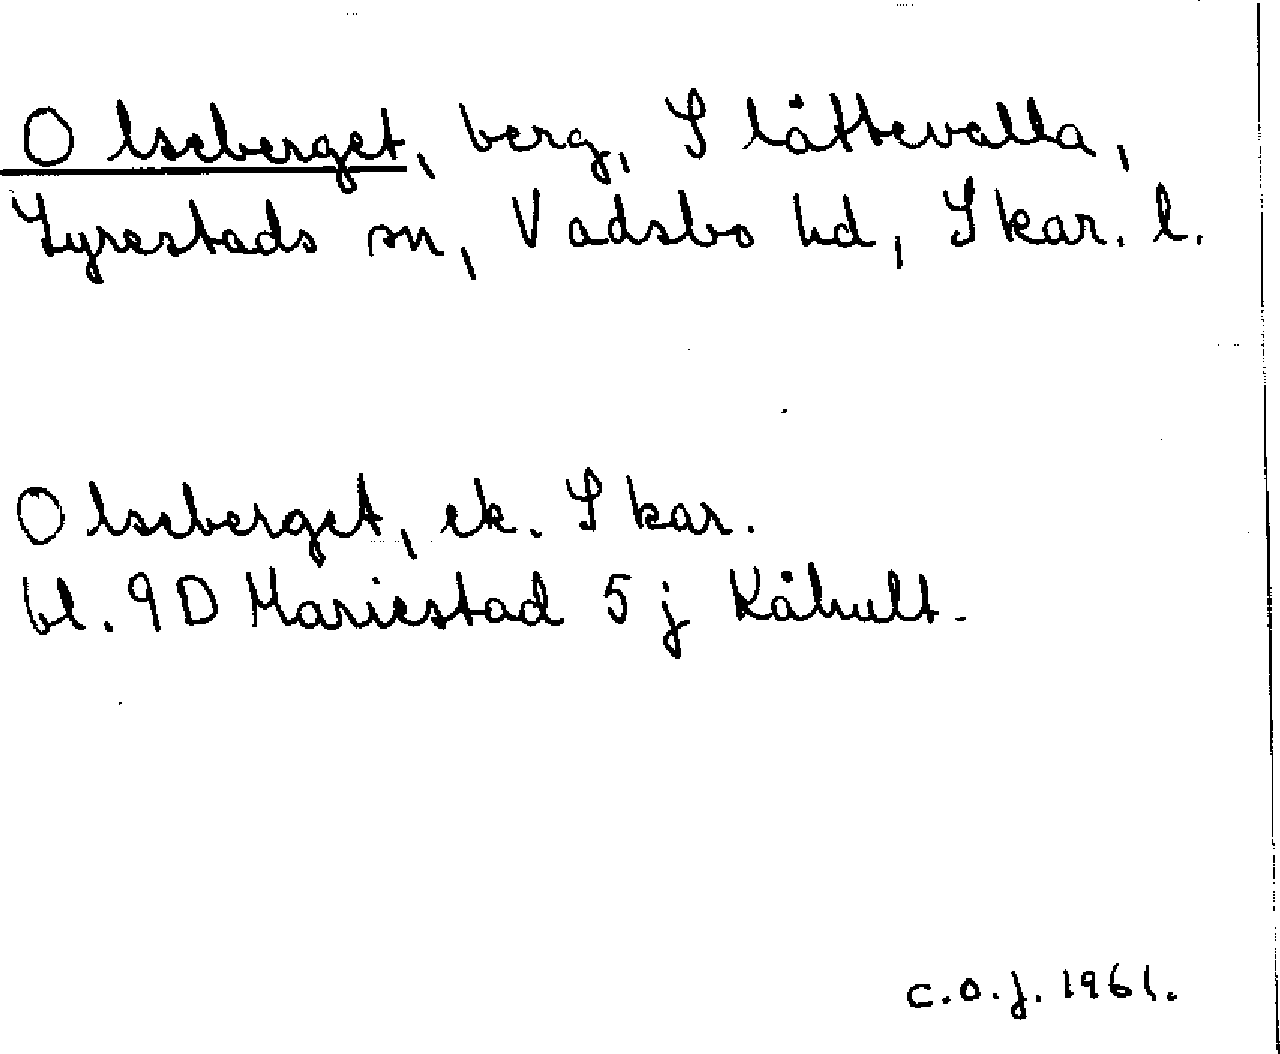 Olseberget, berg, Slåttevalla,
Lyrestads sn, Vadsbo hd, Skar. l.
Olseberget, ek. Skar.
bl. 9D Mariestad 5 j Kåhult.
c.o.j. 1961.